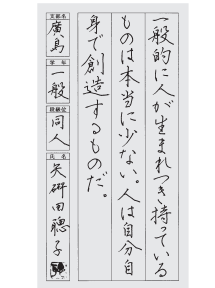 一般的に人が生まれつき持っている
ものは本当に少ない。人は自分自
身で創造するものだ。
支部名
廣島
学年
一般
段級位
同人
氏名
矢野田聰子